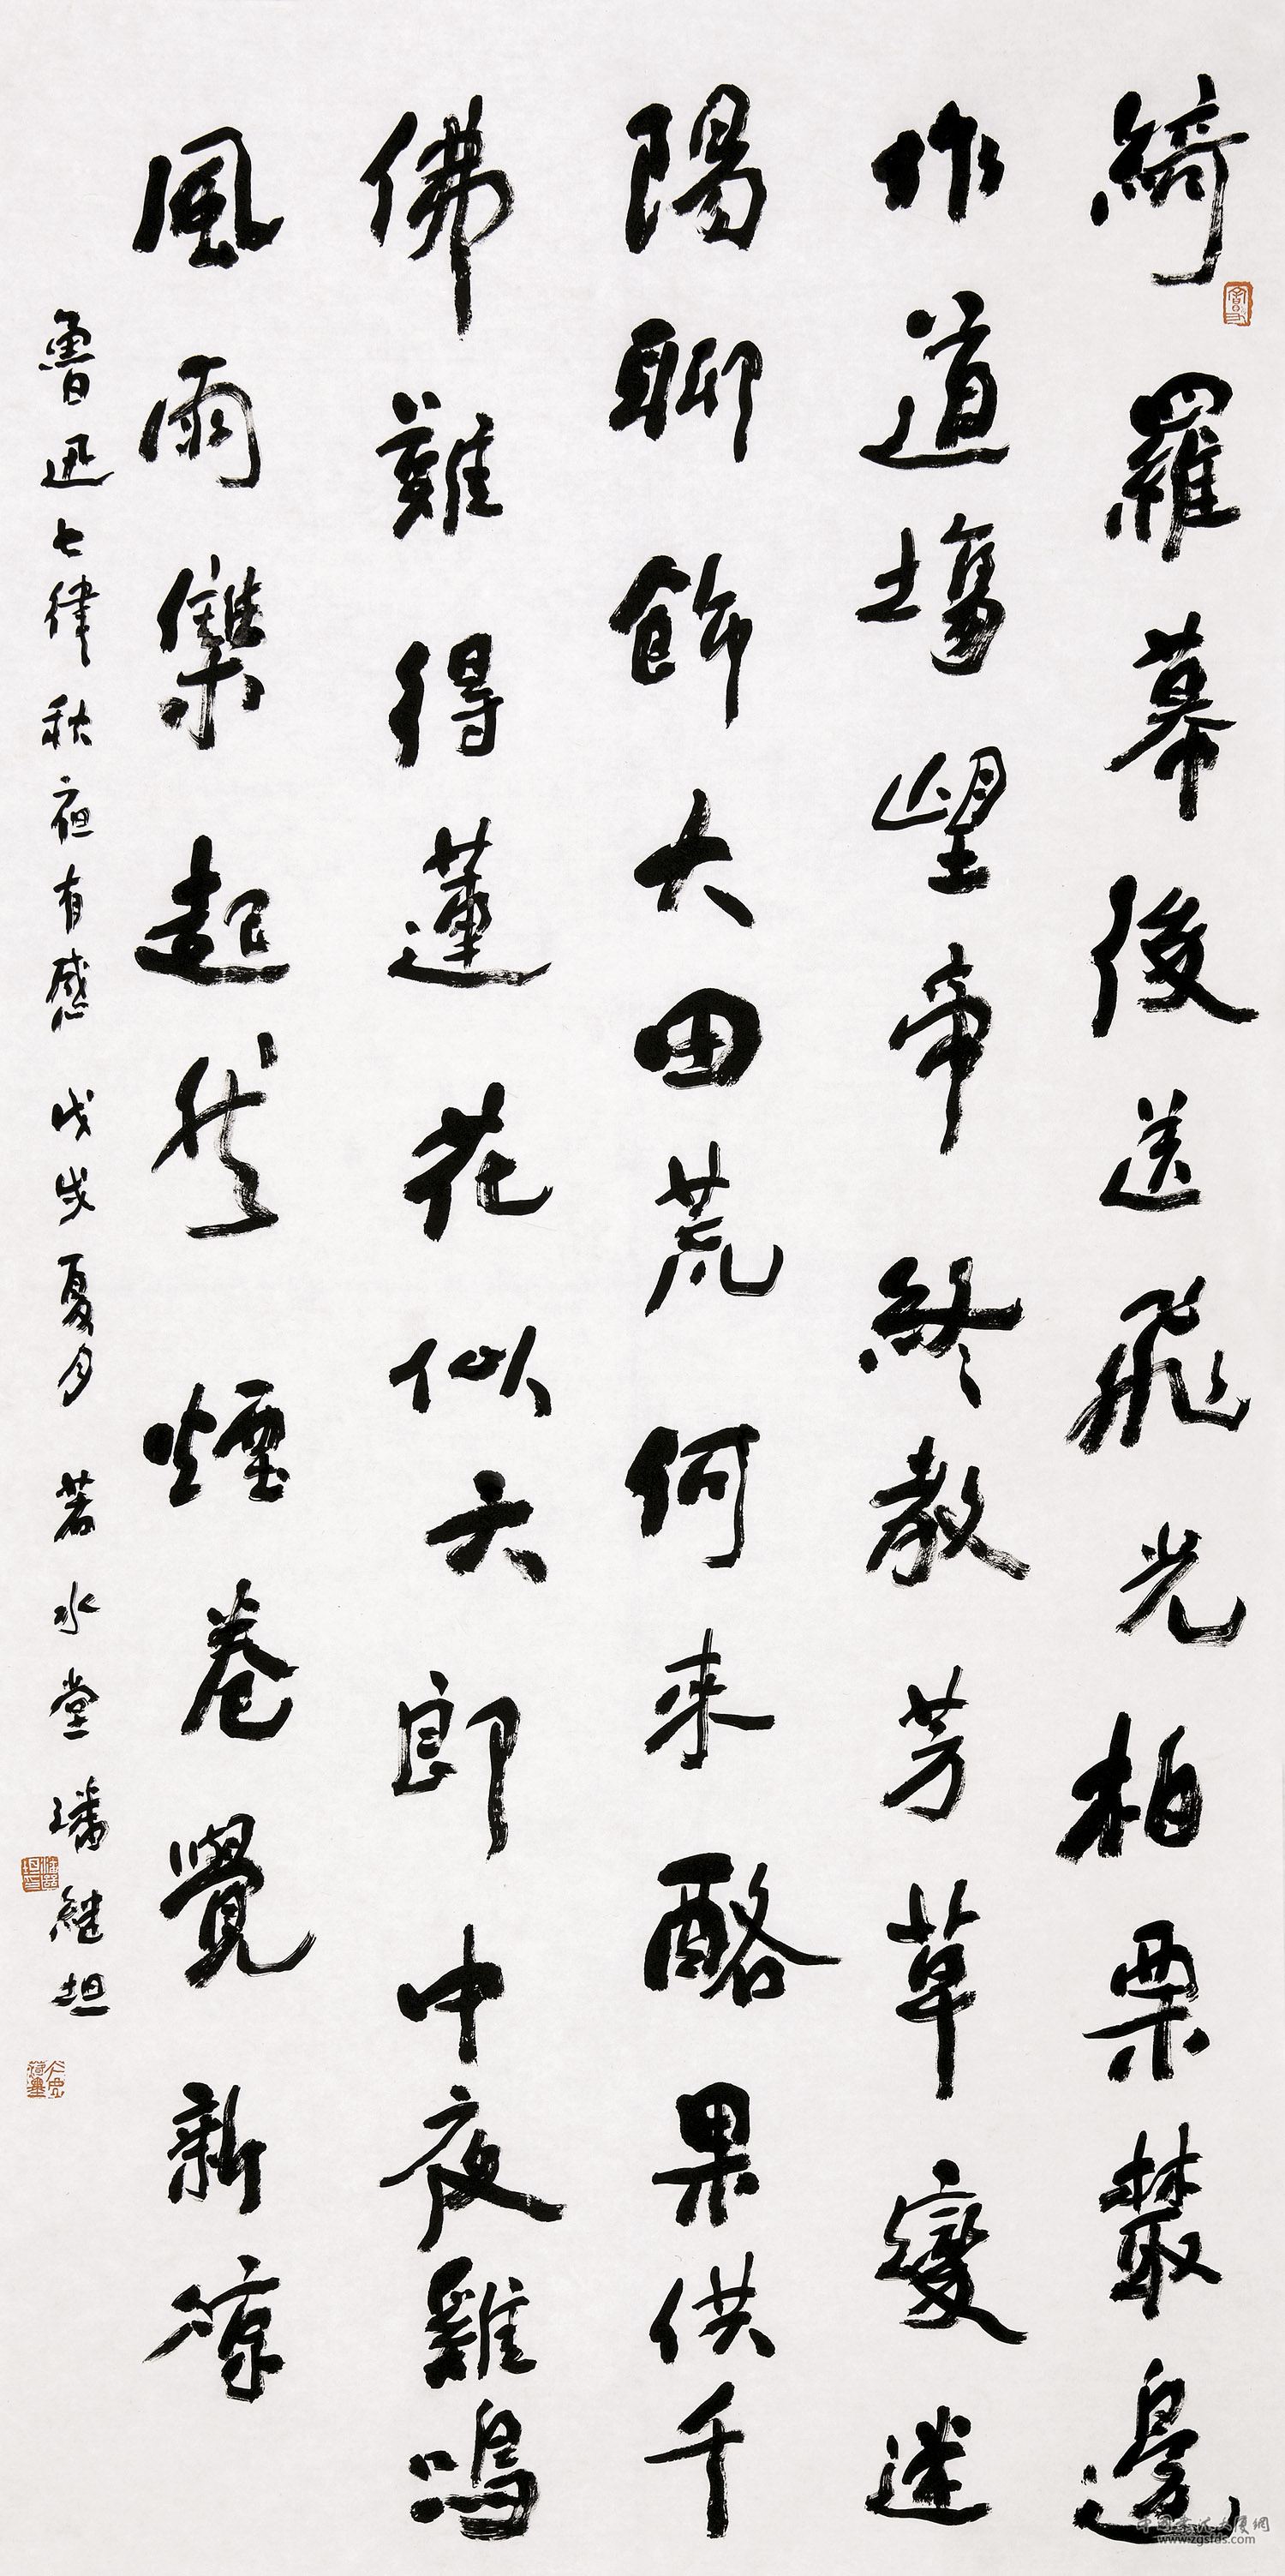 綺羅幕後送飛光柏栗叢邊
作道場望帝終教芳草變迷
陽聊飾大田荒何來酪果供千
佛難得蓮花似六郎中夜雞鳴
風雨集起然煙卷覺新涼
魯迅七律秋夜有感 戊戌夏月 若水堂 潘繼坦
www.zgsfds.com